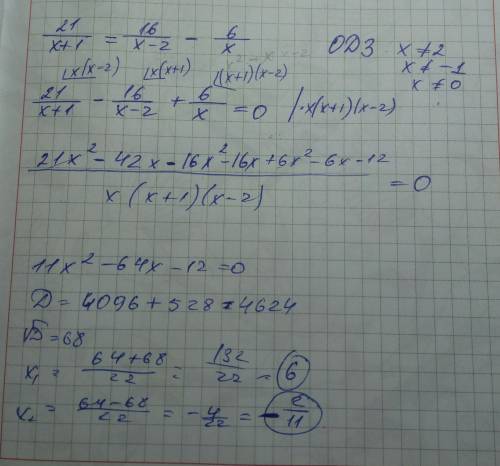 21/(x+1) = 16/(x-2) - 6/x   ОДЗ x ≠ 2
x ≠ -1
x ≠ 0
⌊x(x-2) ⌊x(x+1) ⌊(x+1)(x-2)
21/(x+1) - 16/(x-2) + 6/x = 0 /·x(x+1)(x-2)
(21x² - 42x - 16x² - 16x + 6x² - 6x - 12)/(x(x+1)(x-2)) = 0
11x² - 64x - 12 = 0
D = 4096 + 528 = 4624
√D = 68
x₁ = (64+68)/22 = 132/22 = 6
x₂ = (64-68)/22 = -4/22 = -2/11